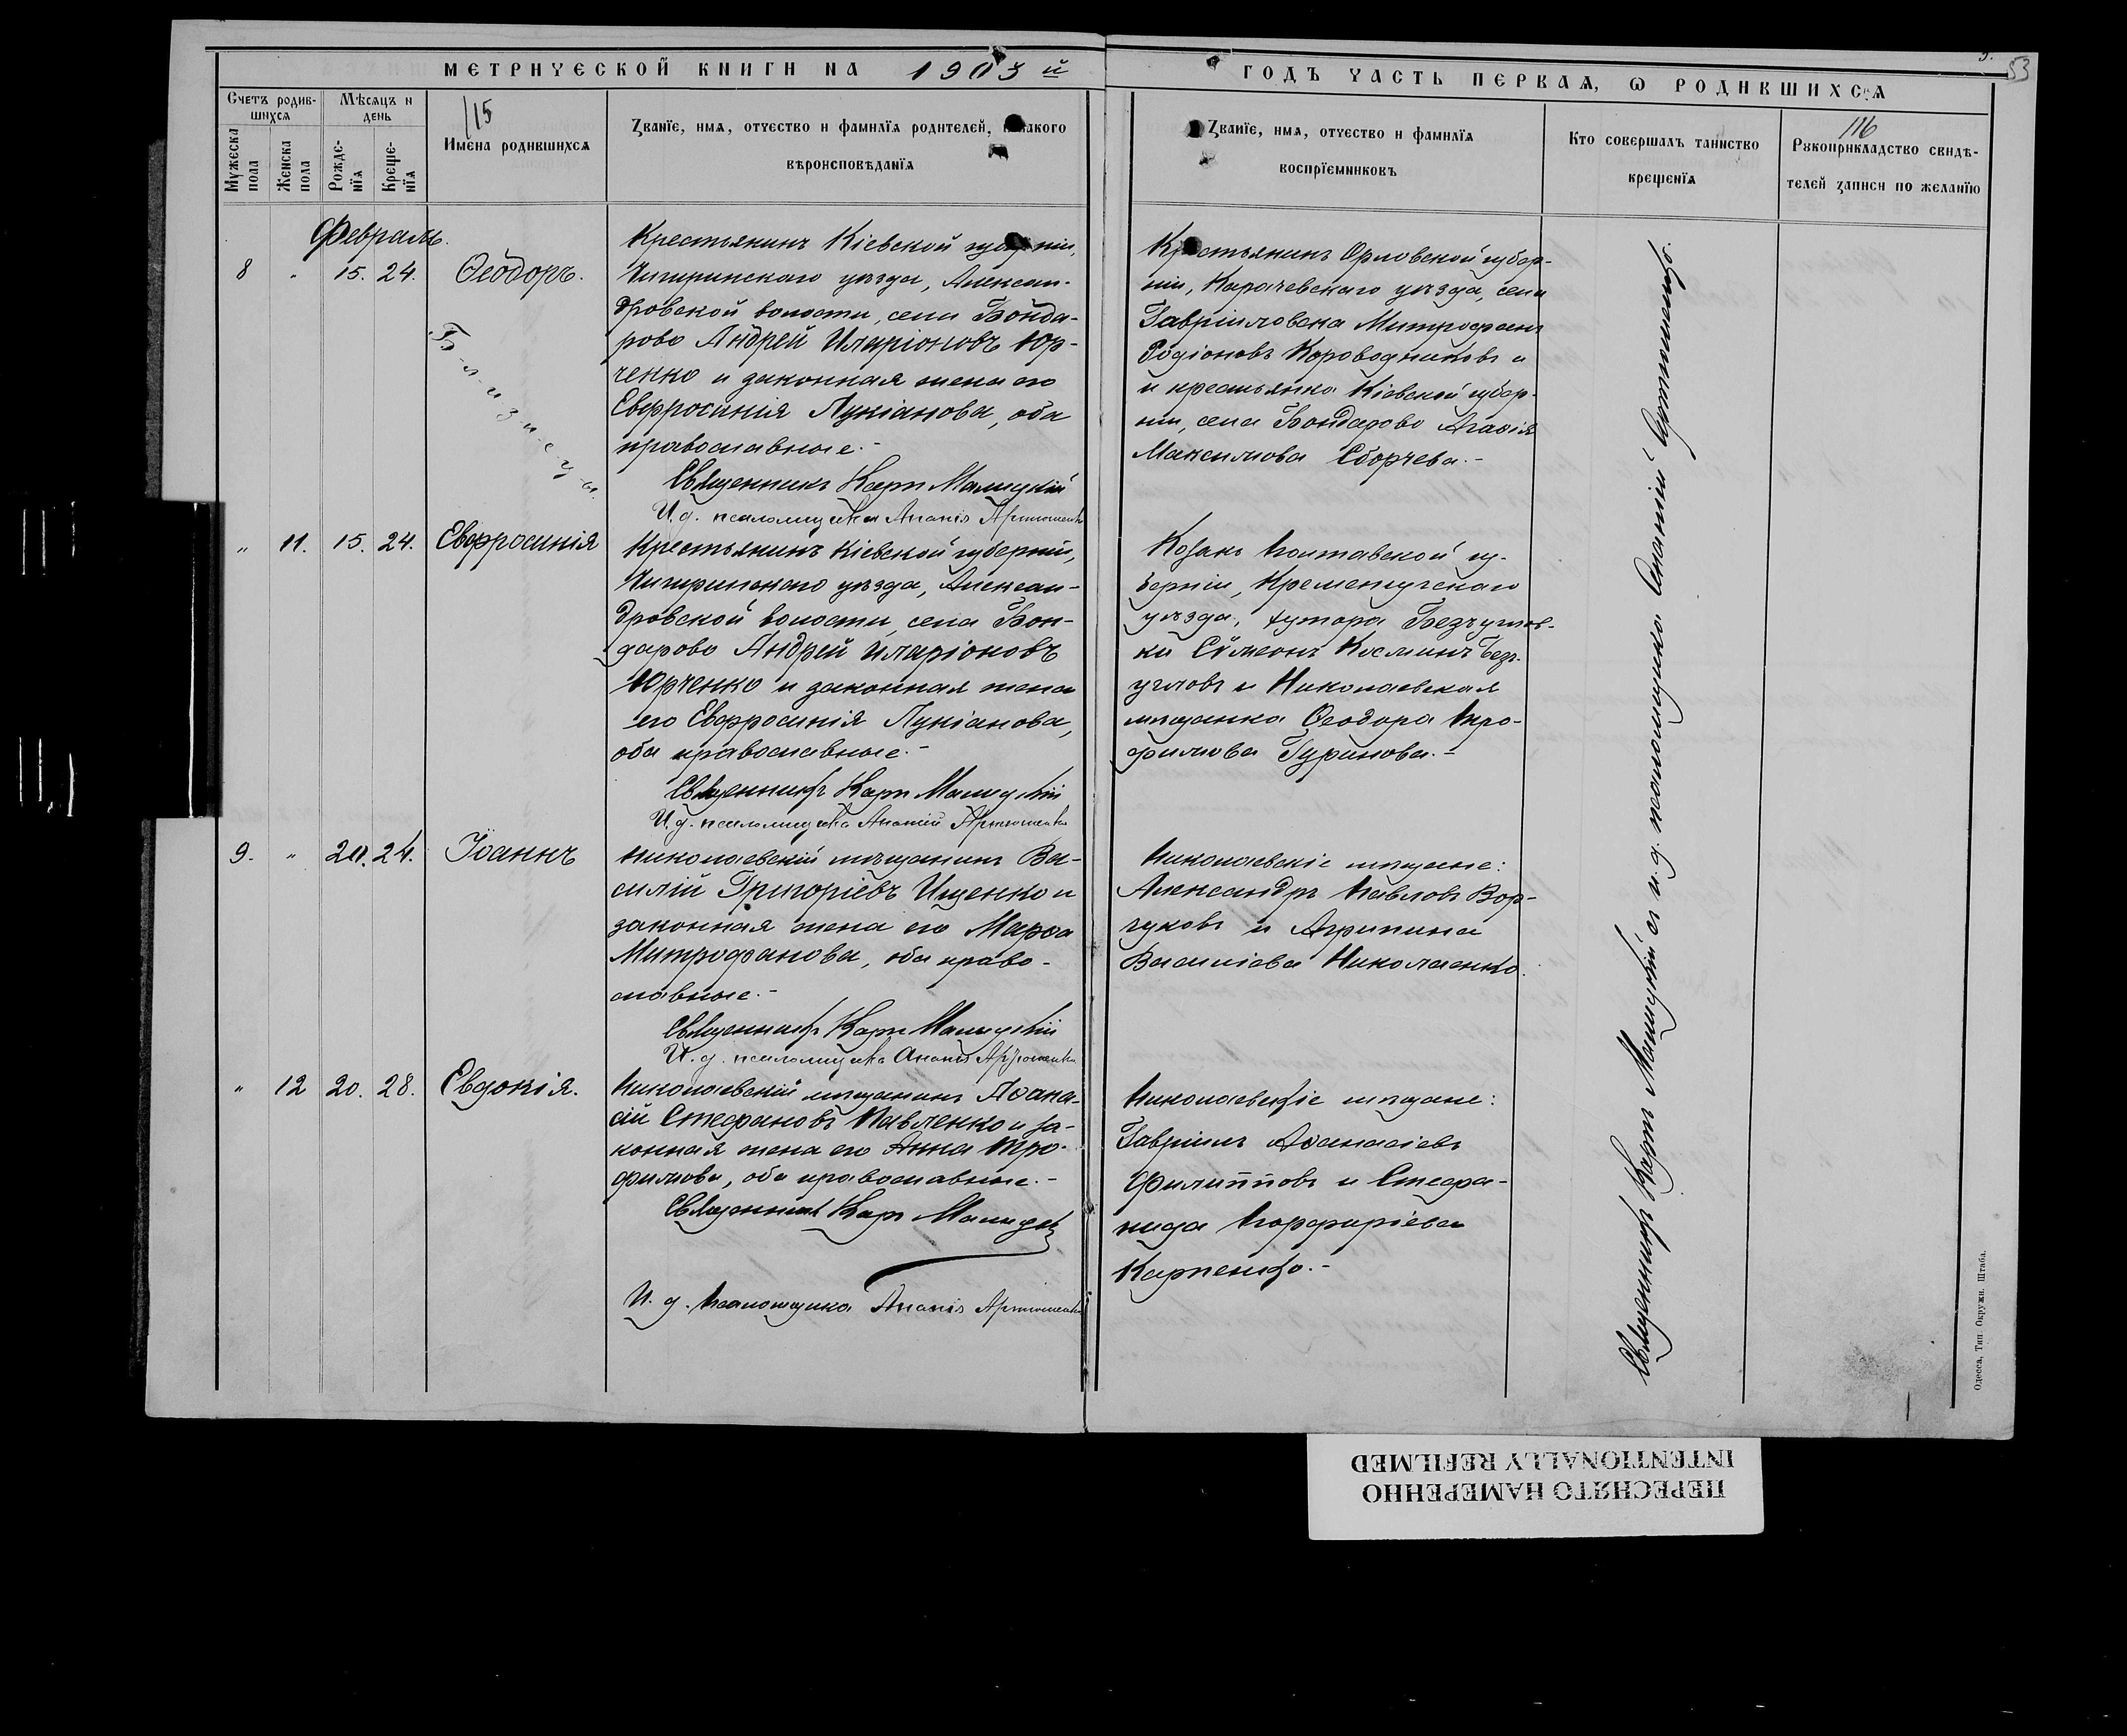 МЕТРИЧЕСКОЙ КНИГИ НА 1903 й
ГОДЪ ЧАСТЬ ПЕРВАЯ, Ѡ РОДИВШИХСЯ
53
Счетъ родив-
шихся
Мѣсяцъ и
день
115
Имена родившихся
Мужеска
пола
Женска
пола
Рожде-
нїя
Креще-
нїя
Званїе, имя, отчество и фамилїя родителей, и какого
вѣроисповѣданїя
Званїе, имя, отчество и фамилїя
воспрїемниковъ
Кто совершалъ таинство
крещенїя
116
Рукоприкладство свидѣ-
телей записи по желанїю
Февраль.
8 " 15. 24. Ѳеодоръ.
Близнецы.
Крестьянинъ Кіевской губерніи,
Чигиринскаго уѣзда, Алексан-
дровской волости, села Бонда-
рово Андрей Иларіоновъ Юр-
ченко и законная жена его
Евфросинія Лукіанова, оба
православные.-
Священникъ Карпъ Малицкій
И. д. псаломщика Ананій Артюшенко
Крестьянинъ Орловской губер-
ніи, Карачевскаго уѣзда, села
Гавріиловска Митрофанъ
Родіоновъ Короводниковъ и
и крестьянка Кіевской губер-
ніи, села Бондарово Агафія
Максимова Сборчева.-
" 11. 15. 24. Евфросинія
Крестьянинъ Кіевской губерніи,
Чигиринскаго уѣзда, Алексан-
дровской волости, села Бон-
дарово Андрей Иларіоновъ
Юрченко и законная жена
его Евфросинія Лукіанова,
оба православные.-
Священникъ Карпъ Малицкій
И. д. псаломщика Ананій Артюшенко
Козакъ Полтавской гу-
берніи, Кременчугскаго
уѣзда, хутора Безуглов-
ки Симеонъ Косминъ Без-
угловъ и Николаевская
мѣщанка Ѳеодора Тро-
фимова Гуринова.-
9. " 20. 24. Іоаннъ
Николаевскій мѣщанинъ Ва-
силій Григоріевъ Ищенко и
законная жена его Марѳа
Митрофанова, оба право-
славные.-
Священникъ Карпъ Малицкій
И. д. псаломщика Ананій Артюшенко
Николаевскіе мѣщане:
Александръ Павловъ Вор-
чуковъ и Агрипина
Василіева Николаенко.
" 12 20. 28. Евдокія.
Николаевскій мѣщанинъ Аѳана-
сій Стефановъ Павленко и за-
конная жена его Анна Тро-
фимова, оба православные.-
Священникъ Карпъ Малицкій
И. д. псаломщика Ананій Артюшенко
Николаевскіе мѣщане:
Гавріилъ Аѳанасіевъ
Филипповъ и Стефа-
нида Порфиріева
Карпенко.-
Священникъ Карпъ Малицкій съ и. д. псаломщика Ананіемъ Артюшенко.
Одесса, Тип. Окружн. Штаба.
ПЕРЕСНЯТО НАМЕРЕННО
INTENTIONALLY REFILMED